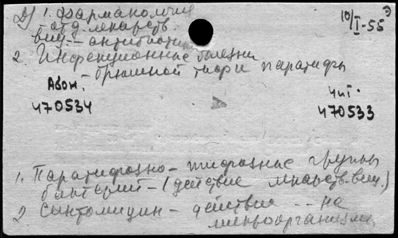 Д) 1. Фармакология
- отд. лекарств.
вещ. - антибиотики
10/I-55
2. Инфекционные болезни
- брюшной тиф и паратифы
Абон.
470534
Чит.
470533
1. Паратифозно - тифозные группы
бактерий - (действие лекарств. вещ.)
2 Синтомицин - действие .. на
микроорганизмы